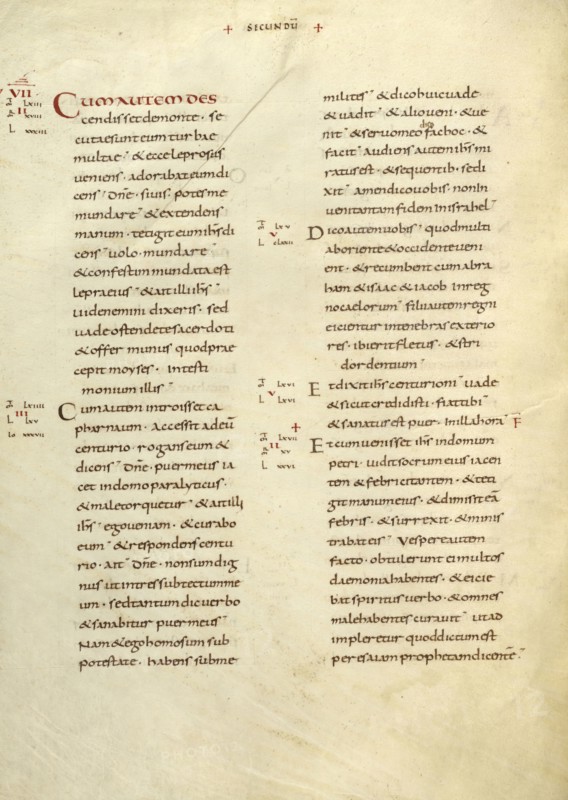 + SECUNDŪ +
VII
LXIII
II
XXXIII
L XXXIII
CUM AUTEM DES
cendisset demonte · se
cutae sunt eum turbae
multae · & ecce leprosus
veniens · adorabat eum di
cens · dn̄e · si vis · potes me
mundare · & extendens
manum · tetigit eum ih̄s di
cens · volo · mundare ·
& confestim mundata est
lepra eius · & ait illi ih̄s ·
vide nemini dixeris · sed
vade ostende te sacerdoti
& offer munus quod prae
cepit moyses · intesti
monium illis ·
LXIIII
III
L LXV
Io XXXVII
Cum autem introisset ca
pharnaum · accessit ad eū
centurio · rogans eum &
dicens · dn̄e · puer meus ia
cet in domo paralyticus ·
& male torquetur · & ait illi
ih̄s · ego veniam · & curabo
eum · & respondens centu
rio · ait · dn̄e · non sum dig
nus ut intres sub tectum me
um · sed tantum dic verbo
& sanabitur puer meus ·
Nam & ego homo sum sub
potestate · habens sub me
milites · & dico huic vade
& vadit · & alio veni · & ve
nit · & servo meo fac hoc · &
facit · audiens autem ih̄s mi
ratus est · & sequentib · se di
xit · amen dico vobis · non in
veni tantam fidem in israhel ·
LXV
V
L CLXXII
Dico autem vobis · quod multi
ab oriente & occidente veni
ent · & recumbent cum abra
ham & isaac & iacob in reg
no caelorum · filii autem regni
eicientur in tenebras exterio
res · ibi erit fletus · & stri
dor dentium ·
LXVI
V
L
Et dixit ih̄s centurioni · vade
& sicut credidisti · fiat tibi ·
& sanatus est puer · in illa hora ·
+
LXVII
II
XV
L XXVI
Et cum venisset ih̄s in domum
petri · vidit socrum eius iacen
tem & febricitantem · & teti
git manum eius · & dimisit eā
febris · & surrexit · & minis
trabat eis · Vespere autem
facto · obtulerunt ei multos
daemonia habentes · & eicie
bat spiritus verbo · & omnes
male habentes curavit · ut ad
impleretur quod dictum est
per esaiam prophetam dicentē ·